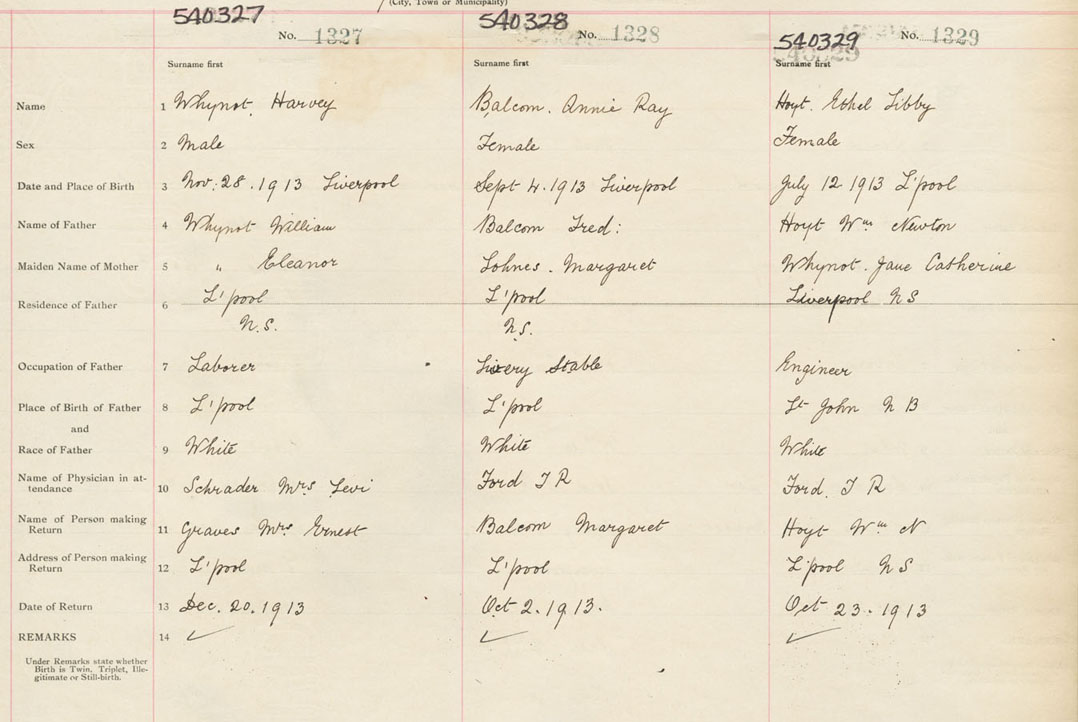 (City, Town or Municipality)
540327 540328 540329
No. 1327 No. 1328 No. 1329
Surname first Surname first Surname first
Name 1 Whynot Harvey Balcom. Annie Ray Hoyt. Ethel Libby
Sex 2 Male Female Female
Date and Place of Birth 3 Nov: 28. 1913 Liverpool Sept 4. 1913 Liverpool July 12 1913 L'pool
Name of Father 4 Whynot William Balcom Fred: Hoyt Wm Newton
Maiden Name of Mother 5 " Eleanor Lohnes. Margaret Whynot. Jane Catherine
Residence of Father 6 L'pool L'pool Liverpool N S
N.S. N.S.
Occupation of Father 7 Laborer Livery Stable Engineer
Place of Birth of Father 8 L'pool L'pool St John N B
and
Race of Father 9 White White White
Name of Physician in at-
tendance 10 Schrader Mrs Levi Ford J R Ford. J R
Name of Person making
Return 11 Graves Mrs Ernest Balcom Margaret Hoyt Wm N
Address of Person making
Return 12 L'pool L'pool L'pool N S
Date of Return 13 Dec. 20. 1913 Oct 2. 1913. Oct 23. 1913
REMARKS 14 ✓ ✓ ✓
Under Remarks state whether
Birth is Twin, Triplet, Ille-
gitimate or Still-birth.